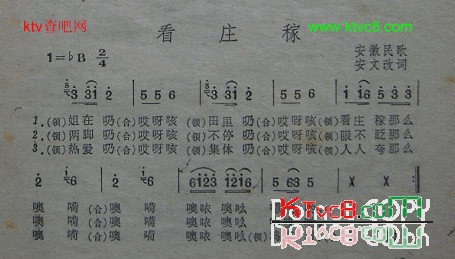 ktv查吧网
www.ktvc8.com
看庄稼
1=♭B 2/4
安徽民歌
安文改词
3 31 2 | 5 5 6 | 3 31 2 | 5 5 6 | 1 16 5 |
1. (领)姐在 叨(合)哎呀咳 (领)田里 叨(合)哎呀咳(领)看庄 稼那么
2. (领)两脚 叨(合)哎呀咳 (领)不停 叨(合)哎呀咳(领)眼不 眨那么
3. (领)热爱 叨(合)哎呀咳 (领)集体 叨(合)哎呀咳(领)人人 夸那么
2 6 | 2 6 | 6123 1216 | 5 63 5 | X X
噢 嗬(合)噢 嗬 噢哝 噢吆
噢 嗬(合)噢 嗬 噢哝 噢吆
噢 嗬(合)噢 嗬 噢哝噢吆(领)
KTvc8.com
COPY